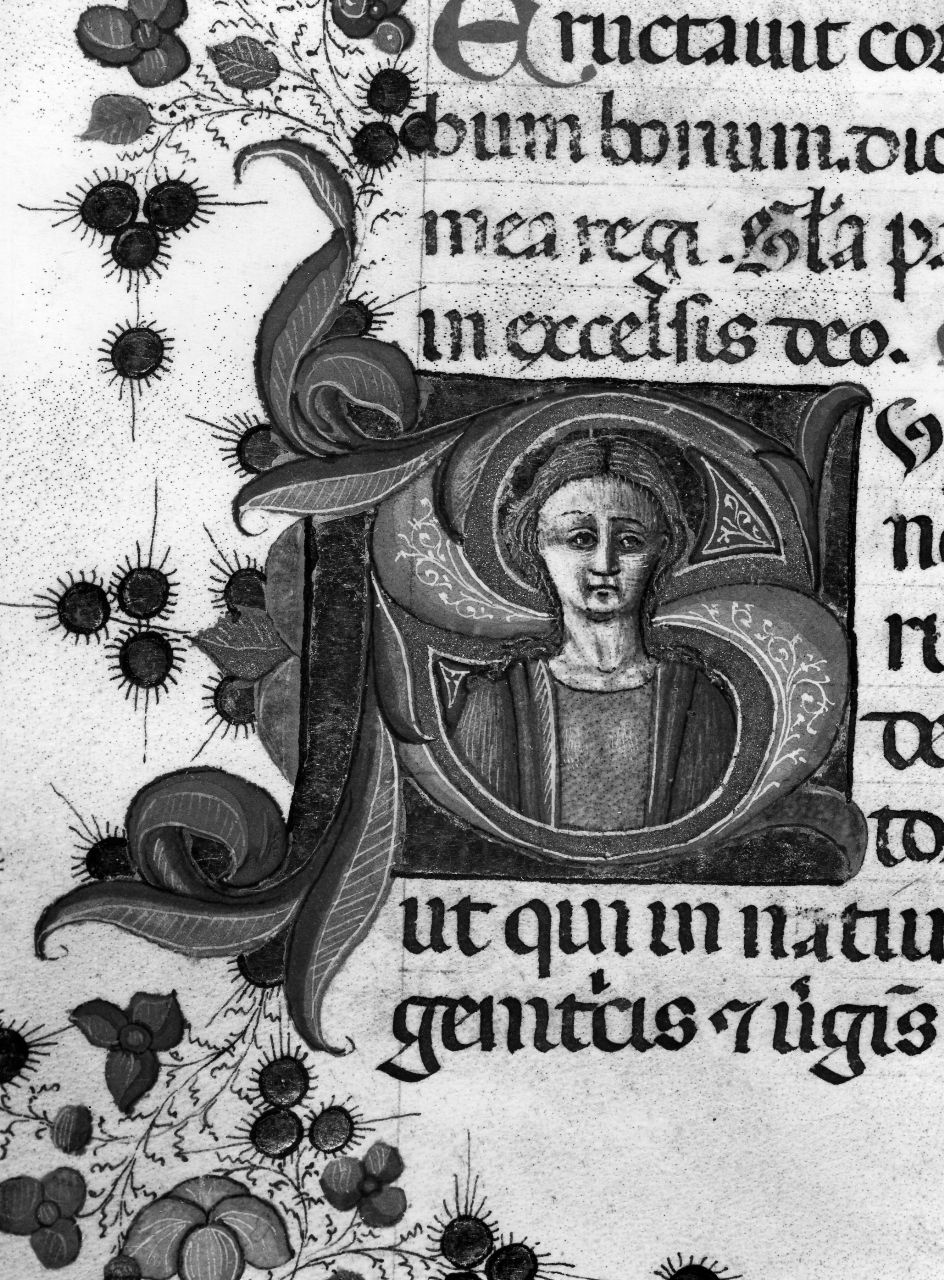 Eructauit cor
bum bonum. dic
mea regi. Gl'a pa
in excelsis deo.
SU
ne
ru
de
to
ut qui in natiu
genit'cis ⁊ u'gis̄